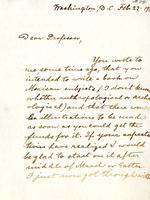 Washington, D.C. Feb 22-19
Dear Professor,
You wrote to
me some time ago, that you
intended to write a book on
Mexican subjects (I don't know
whether anthropological or arch-
ological) and that there were
be illustrations to be made
as soon as you could get the
funds for it. If your expecta-
tions have realized I would
be glad to start on it after
middle of March or Easter
I just now got through with